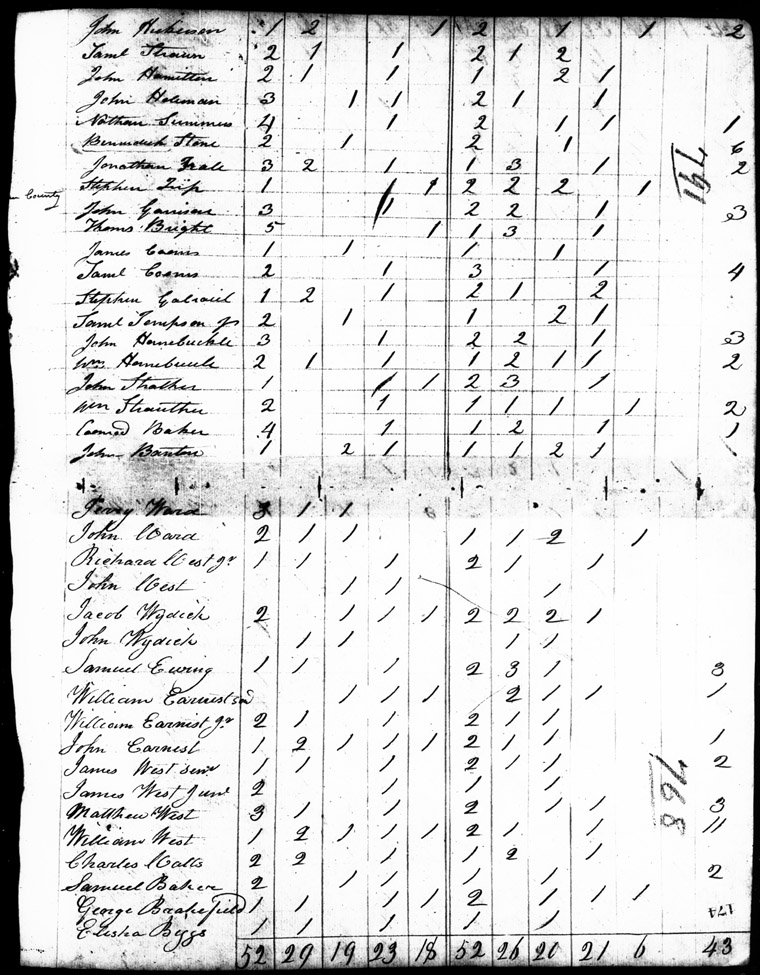 John Hickerson 1 2 1 2 1 1 2
Saml Strawn 2 1 1 2 1 2
John Hamilton 2 1 1 1 2 1
John Holeman 3 1 1 2 1 1
Nathan Summers 4 1 2 1 1 1
Stone 2 1 2 1 6
Jonathan 3 2 1 1 3 1 2
794
County
Stephen 1 1 1 2 2 2 1
John Garrison 3 1 2 2 1 3
Thoms Bright 5 1 1 3 1
James Cooms 1 1 1 1
Saml Cooms 2 1 3 1 4
Stephen 1 2 1 2 1 2
Saml Jr 2 1 1 2 1
John Hornebuckle 3 1 2 2 1 3
Wm 2 1 1 1 2 1 1 2
John Strather 1 1 1 2 3 1
Wm Strauther 2 1 1 1 1 1 2
Conrad Baker 4 1 1 2 1 1
John Banton 1 2 1 1 1 2 1
Ward 3 1 1
John Ward 2 1 1 1 1 2 1
Richard West Jr 1 1 1 2 1 1
John West 1 1 1
Jacob Wydick 2 1 1 1 2 2 2 1
John Wydick 1 1 1 1
Samuel Ewing 1 1 1 2 3 1 3
William Earnest 1 1 1 2 1 1 1
William Earnist Jr 2 1 1 2 1 1
John Earnest 1 2 1 1 1 2 1 1 1
James West Senr 1 1 1 2 1 1 2
James West Junr 2 1 1 1
Matthew West 3 1 1 2 1 1 3
William West 1 2 1 1 1 2 1 1 11
768
Charles Watts 2 2 1 1 2 1
Samuel Baker 2 1 1 1 1 2
George Brakefield 1 1 1 1 2 1 1 1
174
Elisha Byggs 1 1 1 1 1
52 29 19 23 18 52 26 20 21 6 43